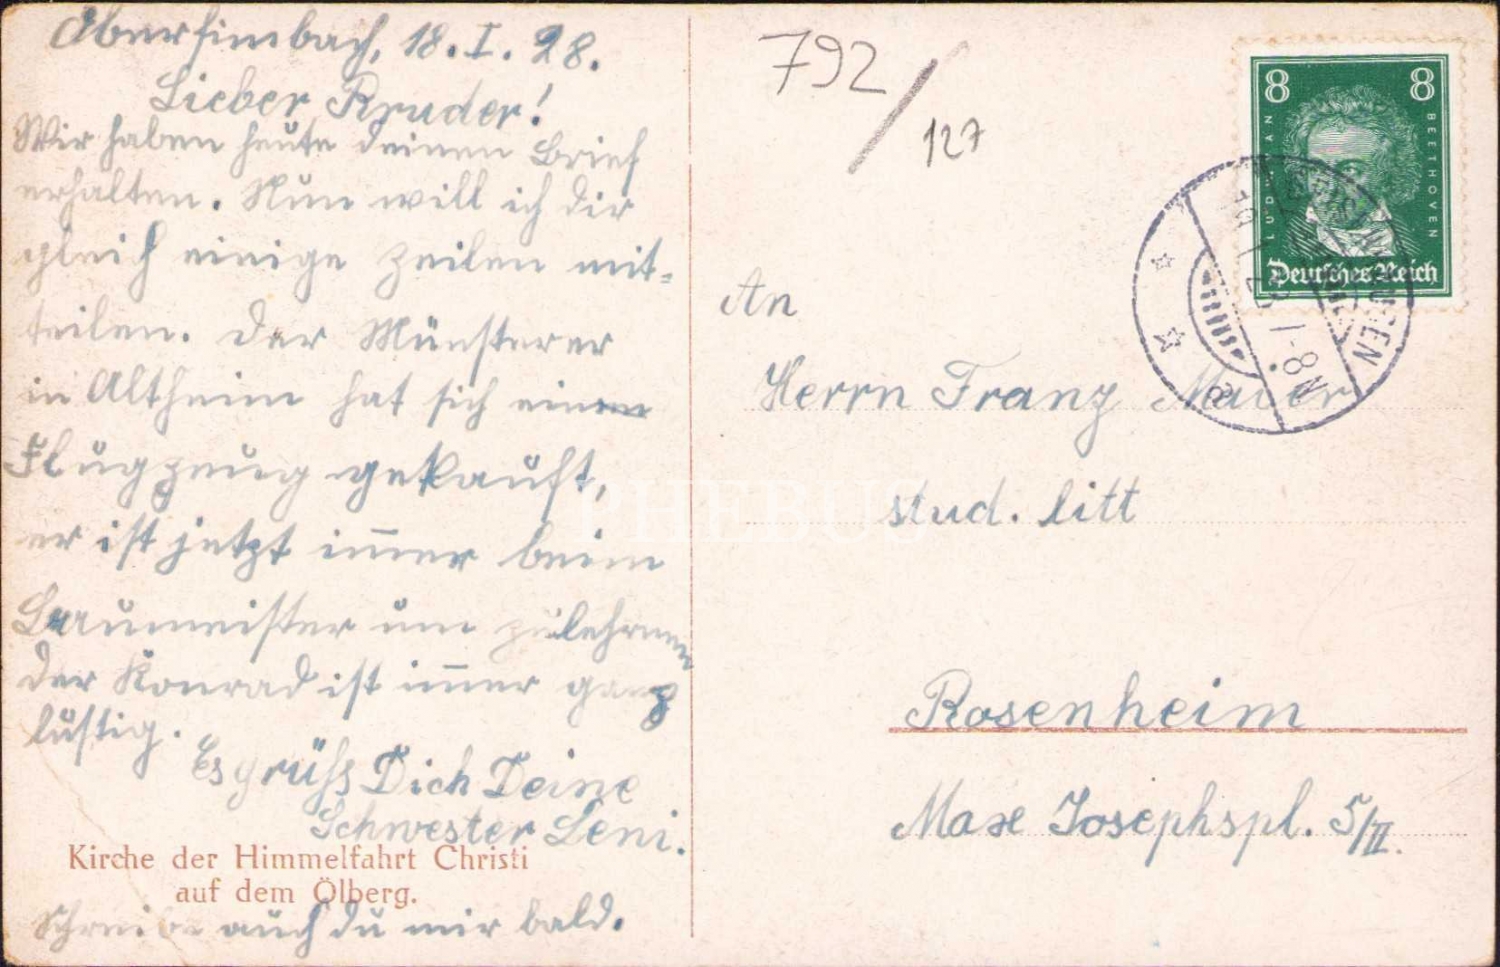 Oberfimbach, 18. I. 28.
Lieber Bruder!
Wir haben heute deinen Brief
erhalten. Nun will ich dir
gleich einige Zeilen mit-
teilen. Der Münsterer
in Altheim hat sich einen
Flugzeug gekauft,
er ist jetzt immer beim
Baumeister um zulehrnen
der Konrad ist immer ganz
lustig.
Es grühs Dich Deine
Schwester Leni.
Kirche der Himmelfahrt Christi
auf dem Ölberg.
Schreibe auch du mir bald.
792/127
8 8
LUDW VAN BEETHOVEN
Deutsches Reich
An
Herrn Franz Maier
stud. litt
Rosenheim
Max Josephspl. 5/II.
PHEBUS